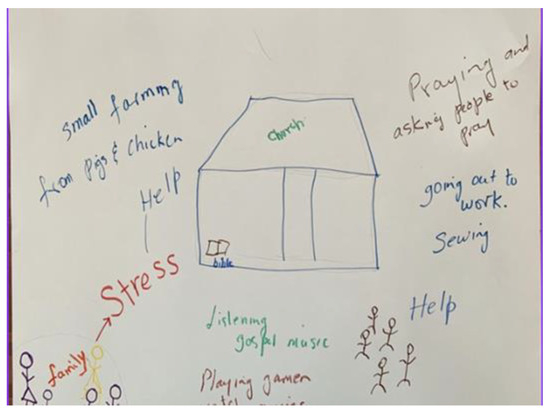 small farming
from pigs & chicken
Help
Stress
family
church
bible
Praying and
asking people to
pray
going out to
work.
Sewing
Help
Listening
gospel music
Playing gamen